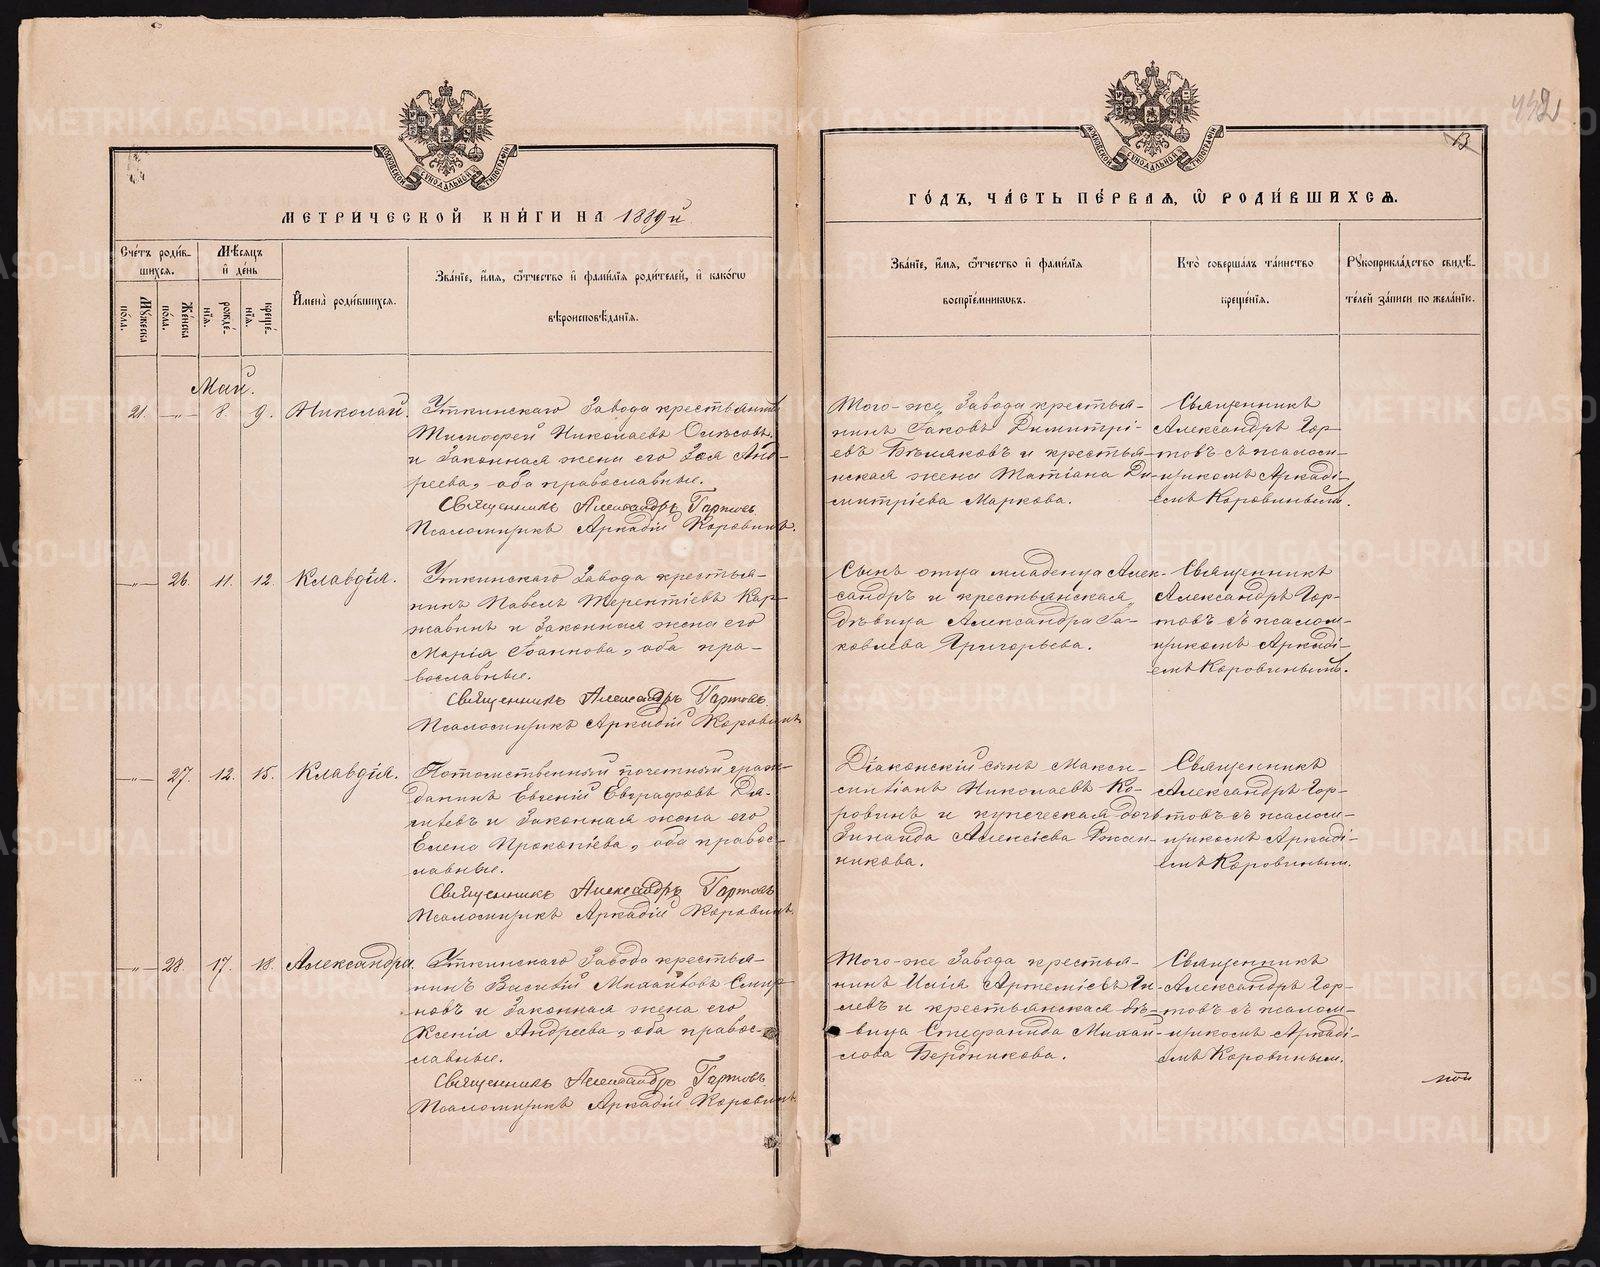 МЕТРИЧЕСКОЙ КНИГИ НА 1889й
ГОДЪ, ЧАСТЬ ПЕРВАЯ, Ѡ РОДИВШИХСЯ.
Счетъ родившихся.
Мѣсяцъ и день
Мужеска пола.
Женска пола.
рожденія.
крещенія.
Имена родившихся.
Званіе, имя, отчество и фамилія родителей, и какогѡ
вѣроисповѣданія.
Званіе, имя, отчество и фамилія
воспріемникѡвъ.
Кто совершалъ таинство
крещенія.
Рукоприкладство свидѣ-
телей записи по желанію.
Май.
21. —„— 8. 9. Николай.
Уткинскаго Завода крестьянинъ
Тимофей Николаевъ
и законная жена его Зоя Анд-
реева, оба православные.
Священникъ Александръ Гартовъ
Псаломщикъ Аркадій Коровинъ.
Того-же Завода крестья-
нинъ Іаковъ Димитрі-
евъ Бѣляковъ и крестья-
нская жена Татіана Ди-
митріева Маркова.
Священникъ
Александръ Гар-
товъ съ псалом-
щикомъ Аркаді-
емъ Коровинымъ.
—„— 26. 11. 12. Клавдія.
Уткинскаго Завода крестья-
нинъ Павелъ Терентіевъ Кар-
жавинъ и законная жена его
Марія Іоаннова, оба пра-
вославные.
Священникъ Александръ Гартовъ
Псаломщикъ Аркадій Коровинъ
Сынъ отца младенца Алек-
сандръ и крестьянская
дѣвица Александра Іа-
ковлева Григорьева.
Священникъ
Александръ Гар-
товъ съ псалом-
щикомъ Аркаді-
емъ Коровинымъ.
—„— 27. 12. 15. Клавдія.
Потомственный почетный граж-
данинъ Евгеній Евграфовъ
и законная жена его
Елена Прокопіева, оба правос-
лавные.
Священникъ Александръ Гартовъ
Псаломщикъ Аркадій Коровинъ.
Діаконскій сынъ Макси-
миліанъ Николаевъ Ко-
ровинъ и купеческая дочь
Зинаида Алексіева
Священникъ
Александръ Гар-
товъ съ псалом-
щикомъ Аркаді-
емъ Коровинымъ.
—„— 28. 17. 18. Александра.
Уткинскаго Завода крестья-
нинъ Василій Михайловъ Смир-
новъ и законная жена его
Ксенія Андреева, оба правос-
лавные.
Священникъ Александръ Гартовъ
Псаломщикъ Аркадій Коровинъ
Того-же Завода крестья-
нинъ Исаія Артеміевъ Ги-
левъ и крестьянская дѣ-
вица Стефанида Михай-
лова Бердникова.
Священникъ
Александръ Гар-
товъ съ псалом-
щикомъ Аркаді-
емъ Коровинымъ.
METRIKI.GASO-URAL.RU